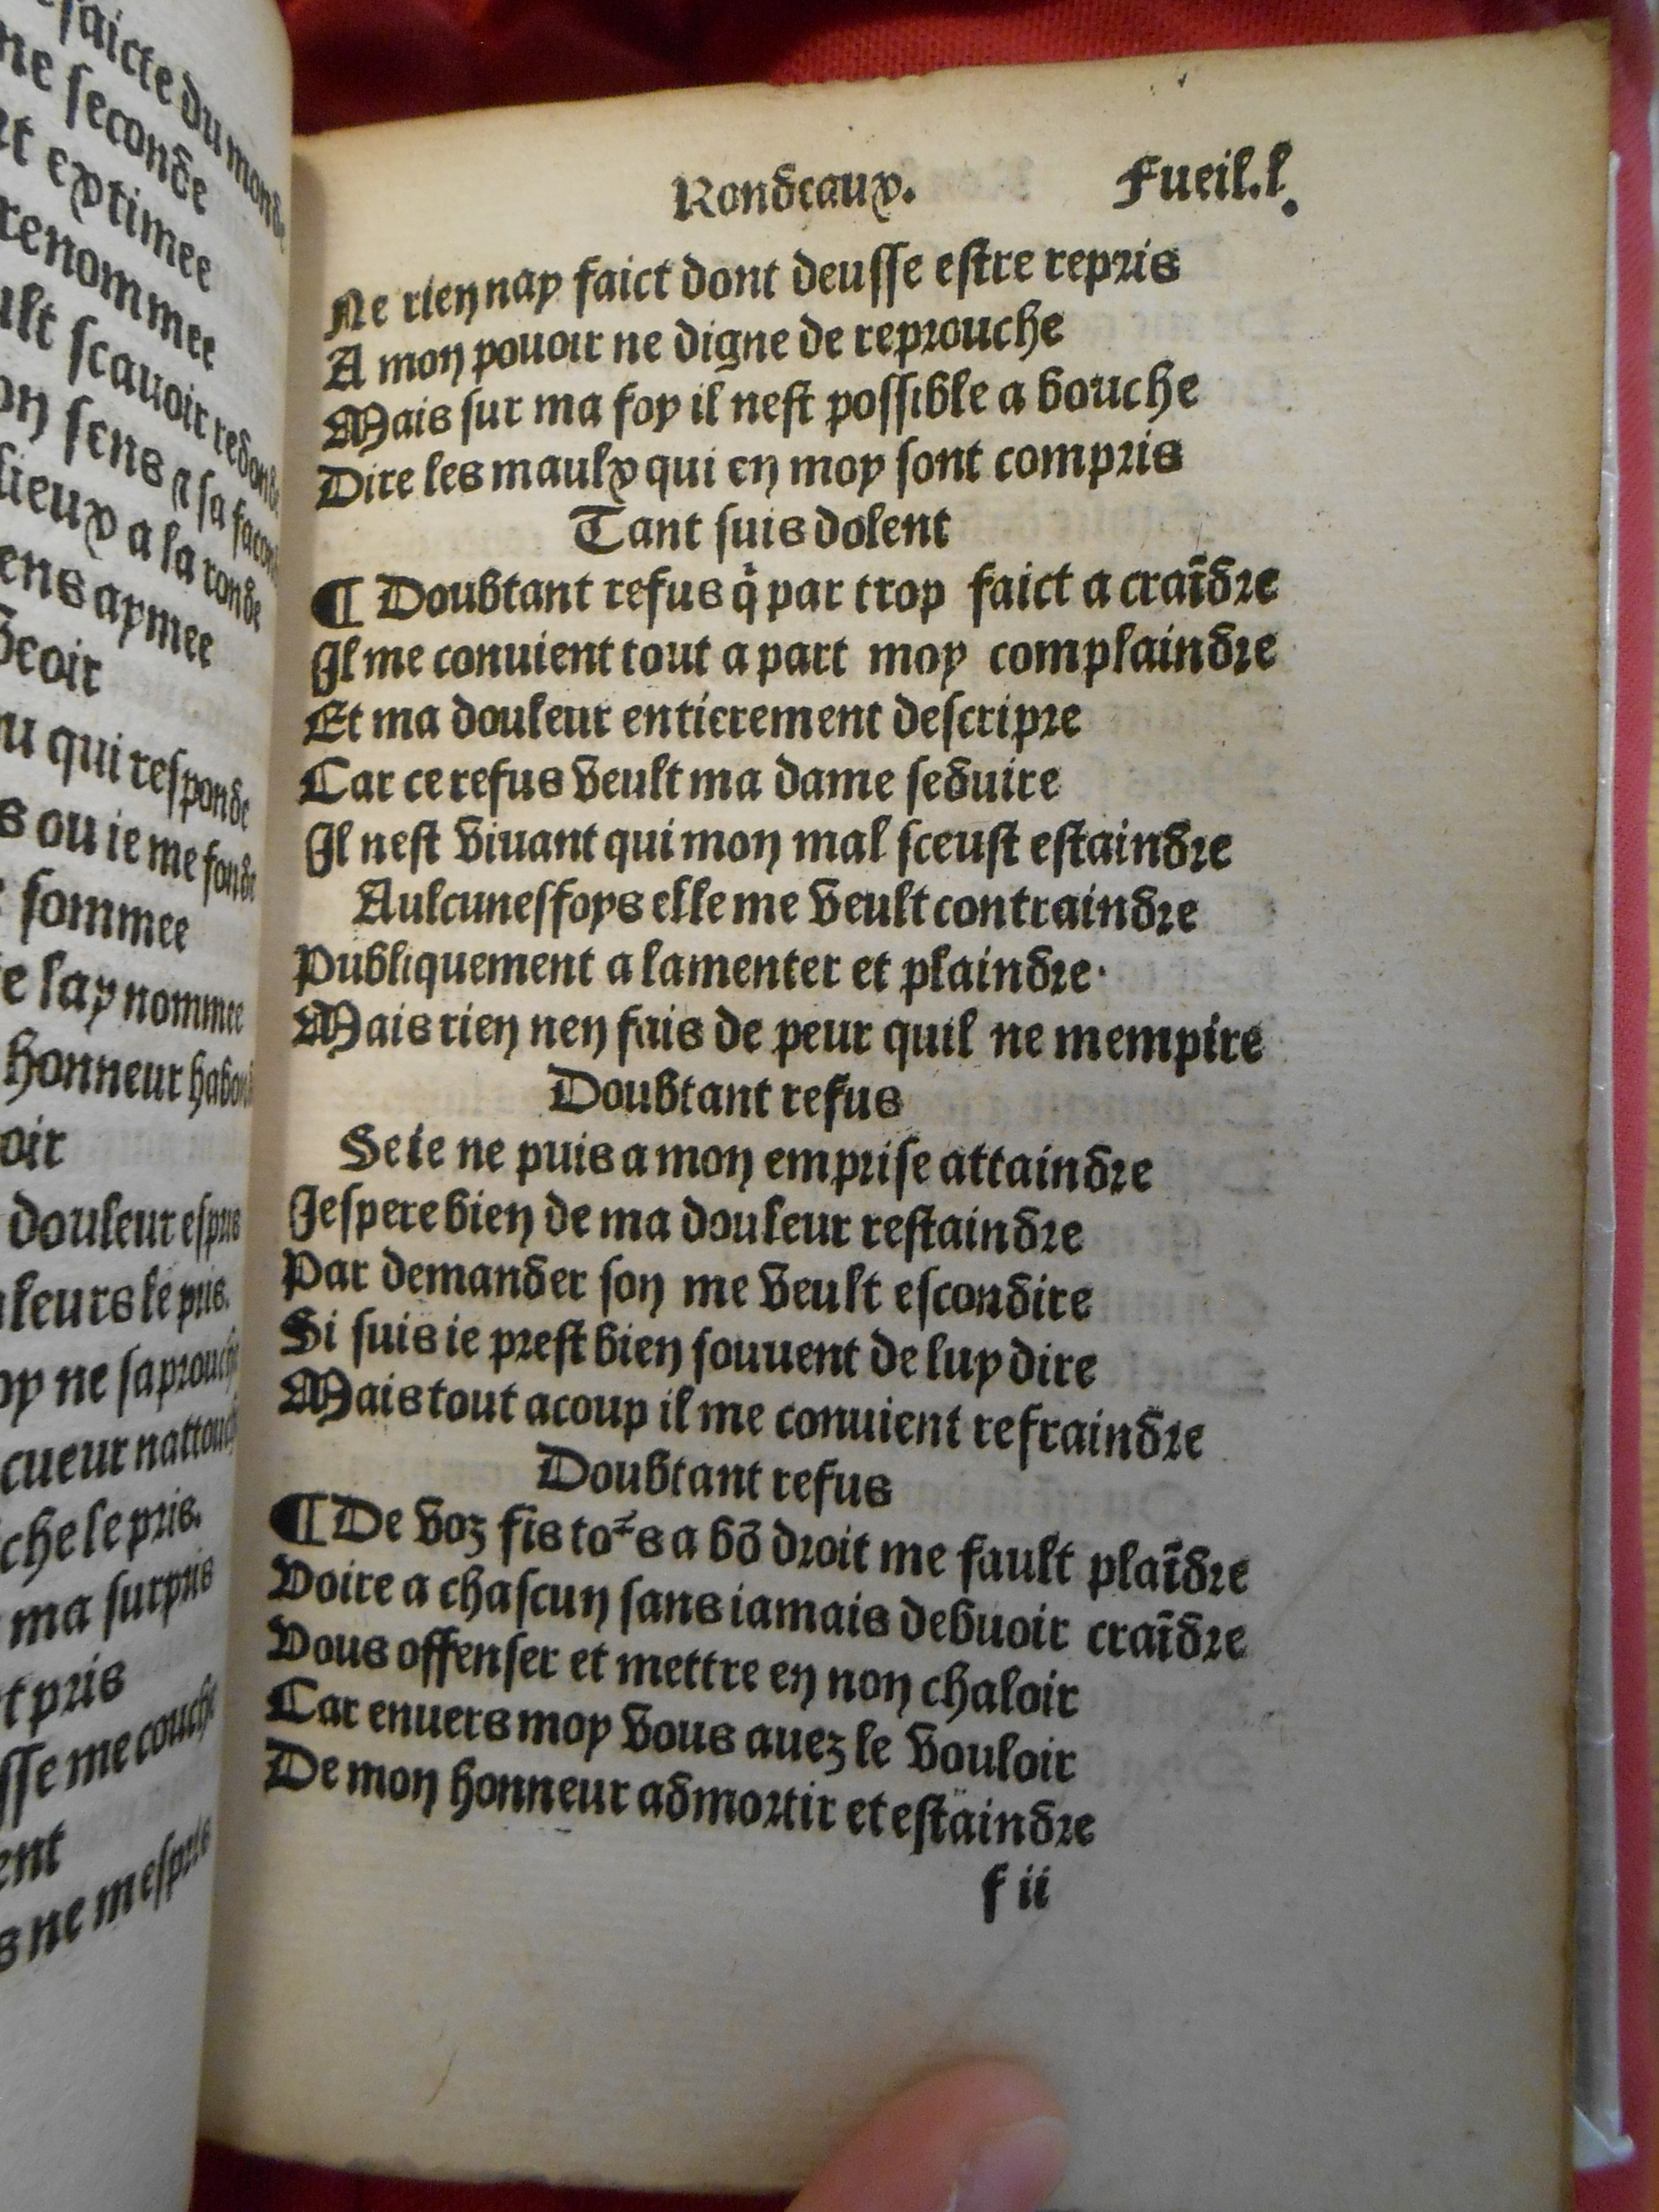 faicte du monde
ne seconde
et extimee
renommee
ult scauoir redonde
on sens & sa facon
lieux a la ronde
ens aymee
veoir
u qui responde
s ou ie me fonde
sommee
e lay nommee
honneur habon
oir
douleur espris
leurs le pris.
oy ne saprouche
cueur nattouch
che le pris.
ma surpris
t pris
sse me couche
ent
s ne mespris
Rondeaux. Fueil.l.
Ne rien nay faict dont deusse estre repris
A mon pouoir ne digne de reprouche
Mais sur ma foy il nest possible a bouche
Dire les maulx qui en moy sont compris
Tant suis dolent
¶ Doubtant refus q̇ par trop faict a craīdre
Il me conuient tout a part moy complaindre
Et ma douleur entierement descripre
Car ce refus veult ma dame seduire
Il nest viuant qui mon mal sceust estaindre
Aulcunesfoys elle me veult contraindre
Publiquement a lamenter et plaindre.
Mais rien nen fais de peur quil ne mempire
Doubtant refus
Se ie ne puis a mon emprise attaindre
Jespere bien de ma douleur restaindre
Par demander son me veult escondire
Si suis ie prest bien souuent de luy dire
Mais tout acoup il me conuient refraindre
Doubtant refus
¶ De voz fis toꝰs a bō droit me fault plaīdre
Voire a chascun sans iamais debuoir craīdre
Vous offenser et mettre en non chaloir
Car enuers moy vous auez le vouloir
De mon honneur admortir et estaindre
f ii